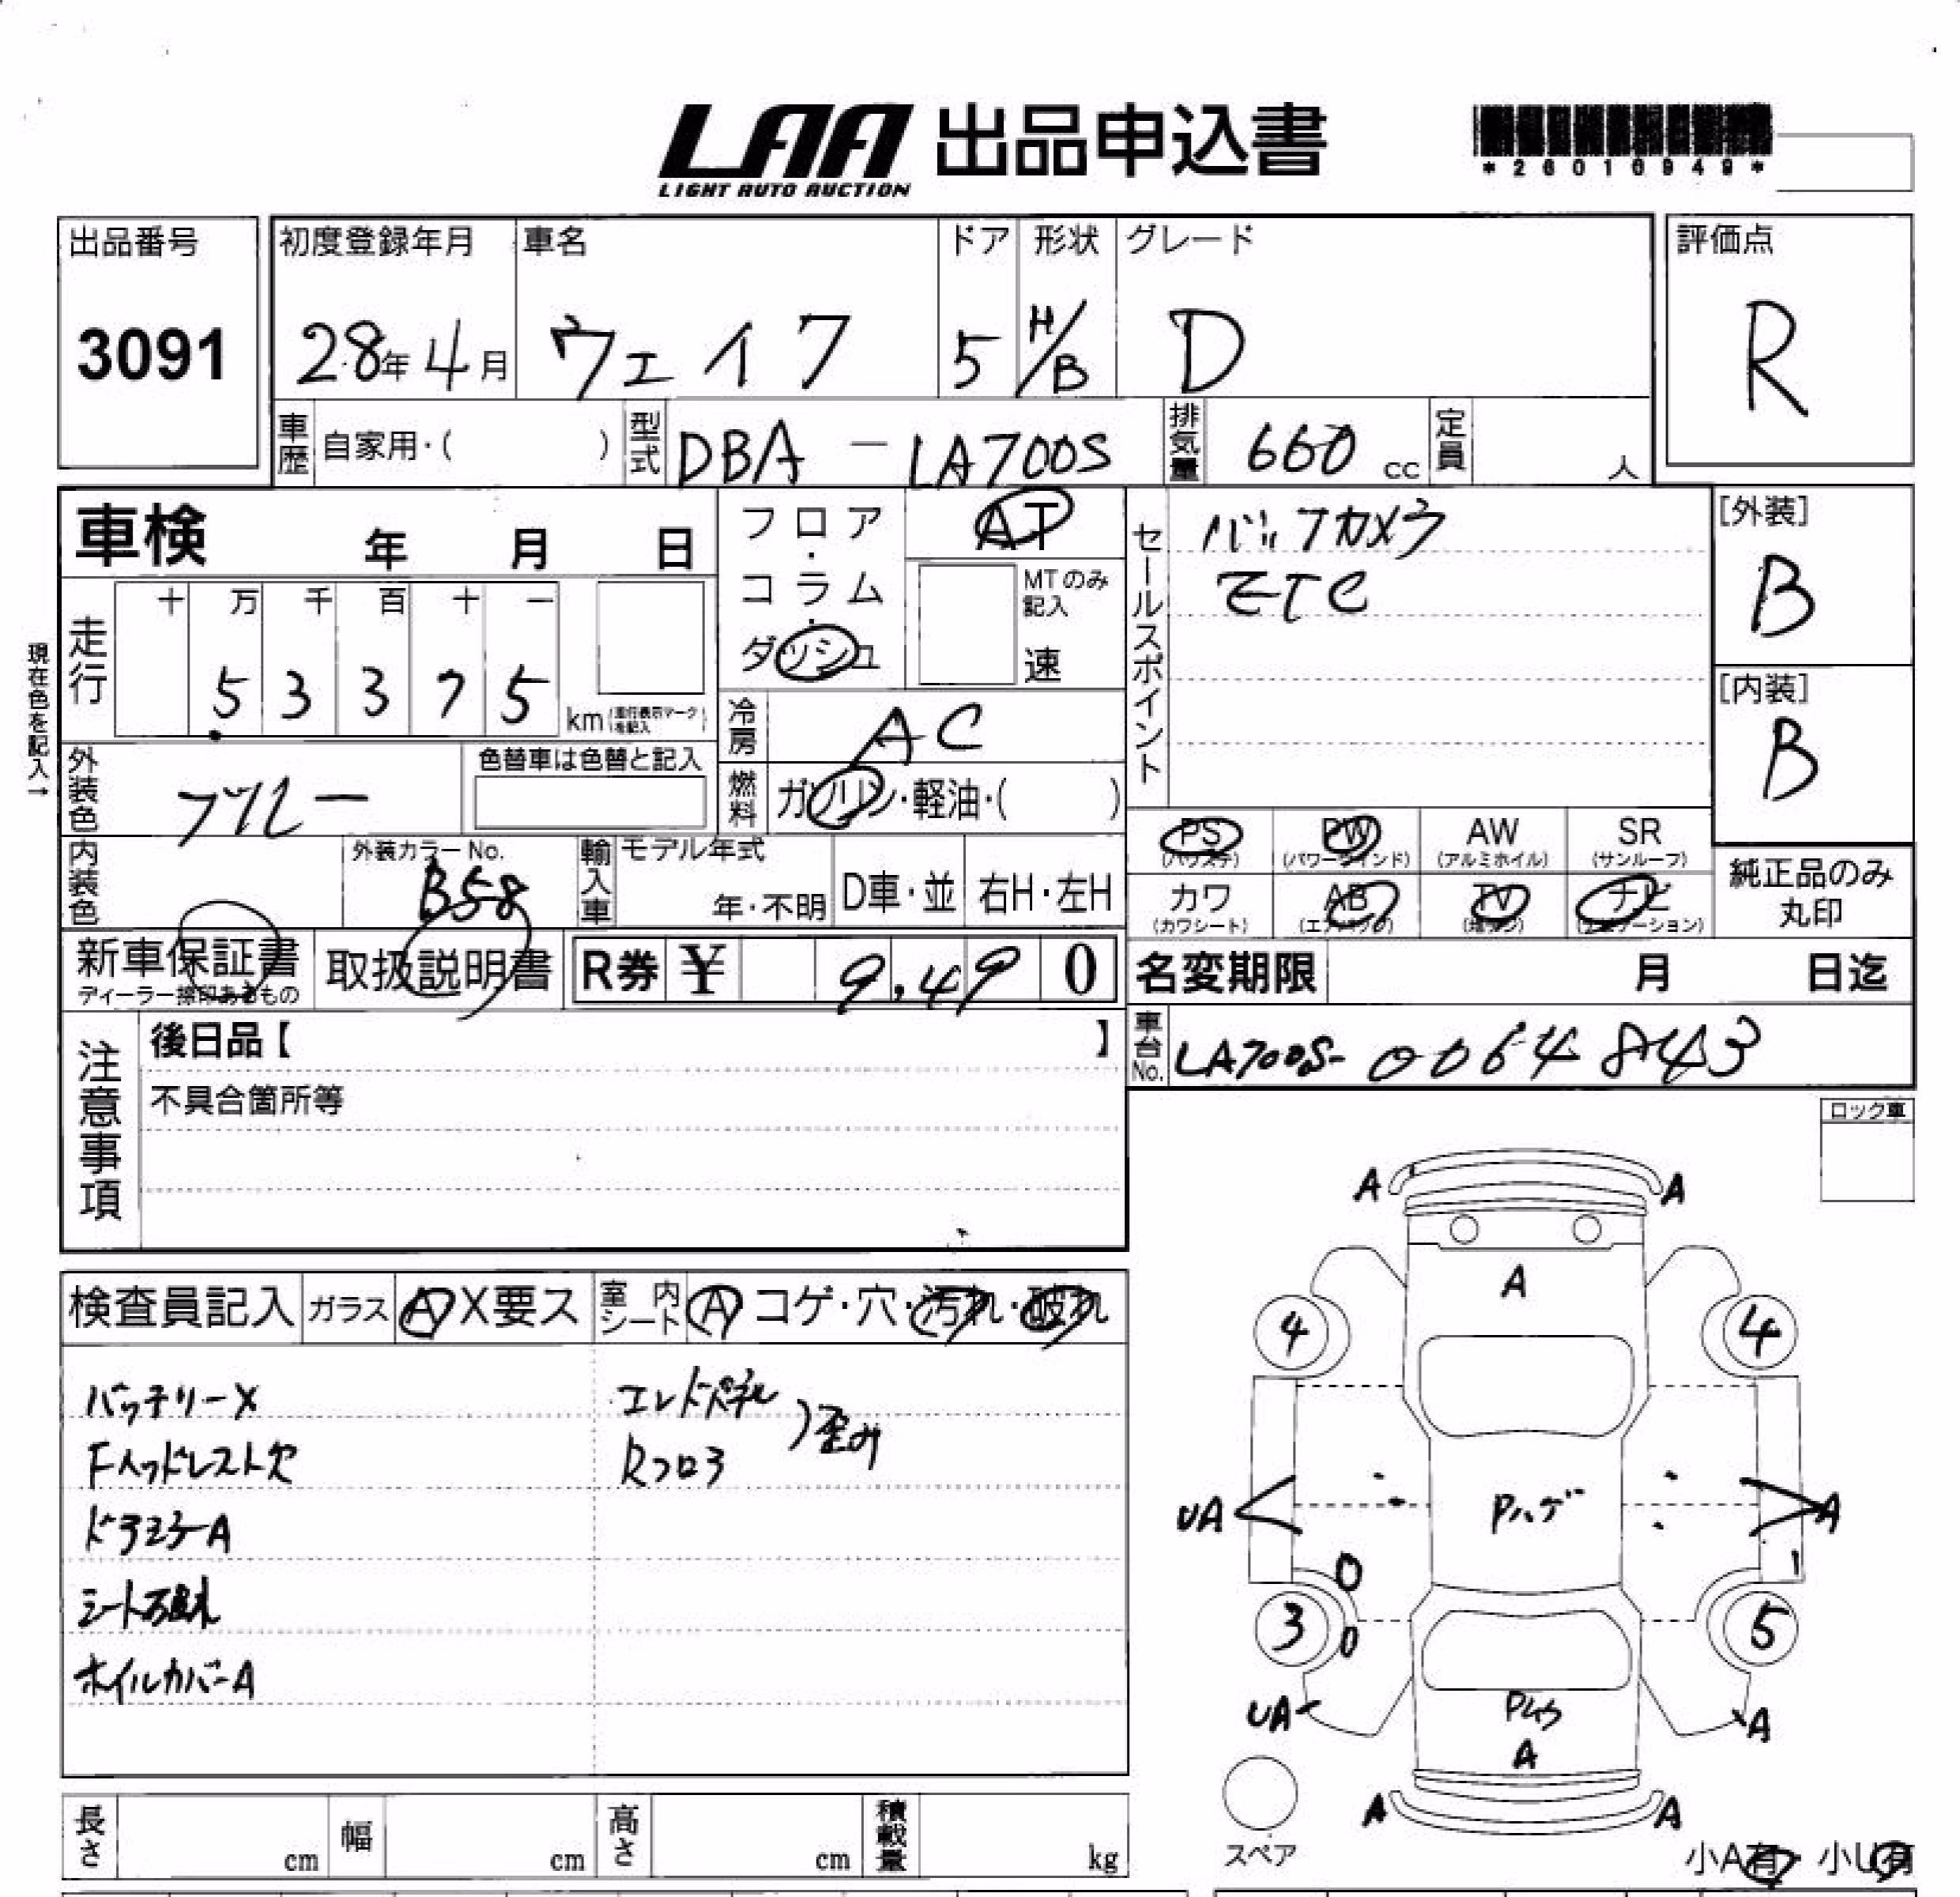 LAA 出品申込書
LIGHT AUTO AUCTION
*26010949*
出品番号 初度登録年月 車名 ドア 形状 グレード 評価点
3091 28年4月 ウェイク 5 H/B D R
車歴 自家用・( ) 型式 DBA-LA700S 排気量 660 cc 定員 人
車検 年 月 日
フロア・コラム・ダッシュ
AT
MTのみ記入
速
セールスポイント
バックカメラ
ETC
[外装]
B
[内装]
B
現在色を記入→
走行 十 万 千 百 十 一
5 3 3 7 5 km (走行表示マークを記入)
冷房 AC
外装色 ブルー 色替車は色替と記入
燃料 ガソリン・軽油・( )
PS (パワステ) PW (パワーウインド) AW (アルミホイル) SR (サンルーフ)
カワ (カワシート) AB (エアバッグ) TV (地デジ) ナビ (ナビゲーション)
純正品のみ丸印
内装色 外装カラーNo. B58
輸入車 モデル年式 年・不明 D車・並 右H・左H
新車保証書 取扱説明書 R券 ¥ 9,490
ディーラー捺印あるもの
名変期限 月 日迄
車台No. LA700S-0064843
注意事項
後日品【 】
不具合箇所等
ロック車
検査員記入 ガラス A X要ス 室内シート A コゲ・穴・汚れ・破れ
バッテリーX
Fヘッドレスト欠
ドラミラーA
シート破れ
ホイルカバーA
エンドパネル
Rフロア
)歪み
A A
A
4 4
UA Pハゲ A
0 1
3 0 5
UA A
A
A A
スペア
小A有 小U有
長さ cm 幅 cm 高さ cm 積載量 kg